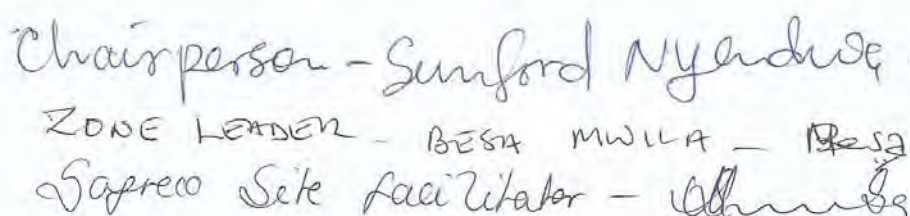 Chairperson - Sunford Nyendwe
ZONE LEADER - BESA MWILA - Besa
Sapreco Site facilitator -